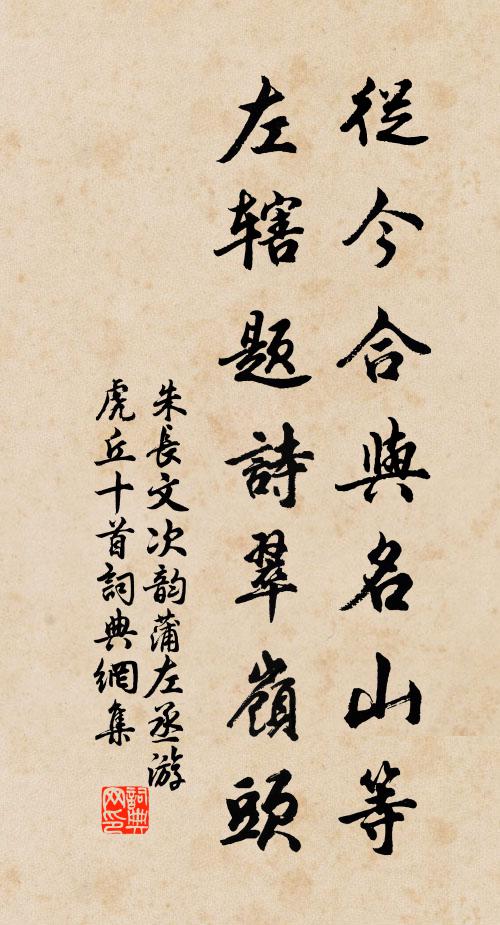 從今合與名山等
左辖题詩翠嶺頭
朱長文次韵蒲左丞游
虎丘十首詞典網集
詞典
网印